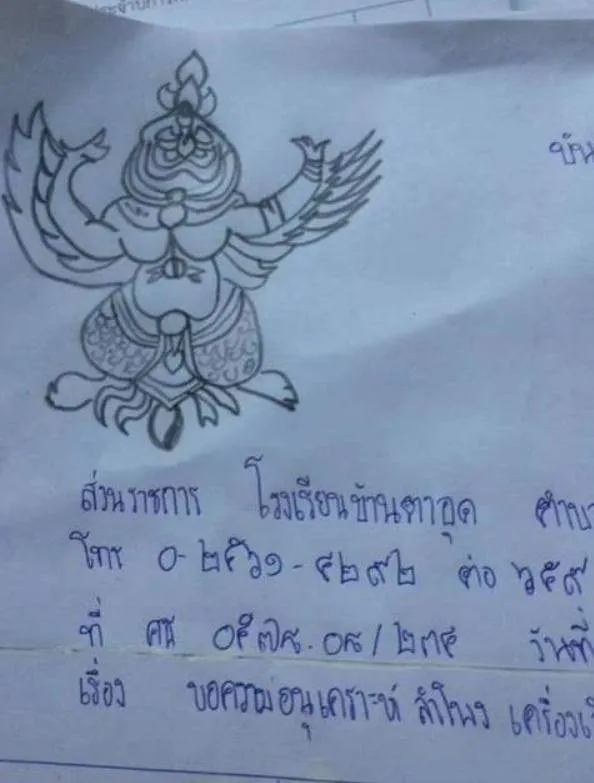 บัน
ส่วนราชการ โรงเรียนบ้านตาอุด ตำบ
โทร ๐-๒๕๖๑-๔๒๙๒ ต่อ ๖๕๙
ที่ ศธ ๐๕๗๘.๐๘/๒๓๕ วันที่
เรื่อง ขอความอนุเคราะห์ ลำโพง เครื่องเ